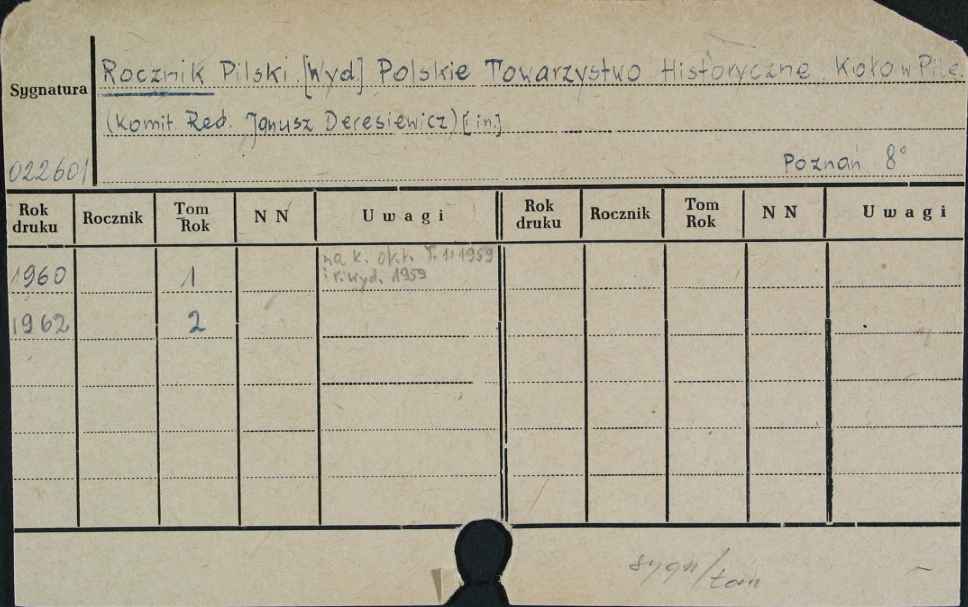 Rocznik Pilski. [Wyd] Polskie Towarzystwo Historyczne Koło w Pile.
Sygnatura
(Komit Red. Janusz Deresiewicz) [i in.]
022601
Poznań 8°
Rok druku Rocznik Tom Rok NN Uwagi Rok druku Rocznik Tom Rok NN Uwagi
na k. okł. T. 1: 1959
1960 1 i r. wyd. 1959
1962 2
sygn/tom